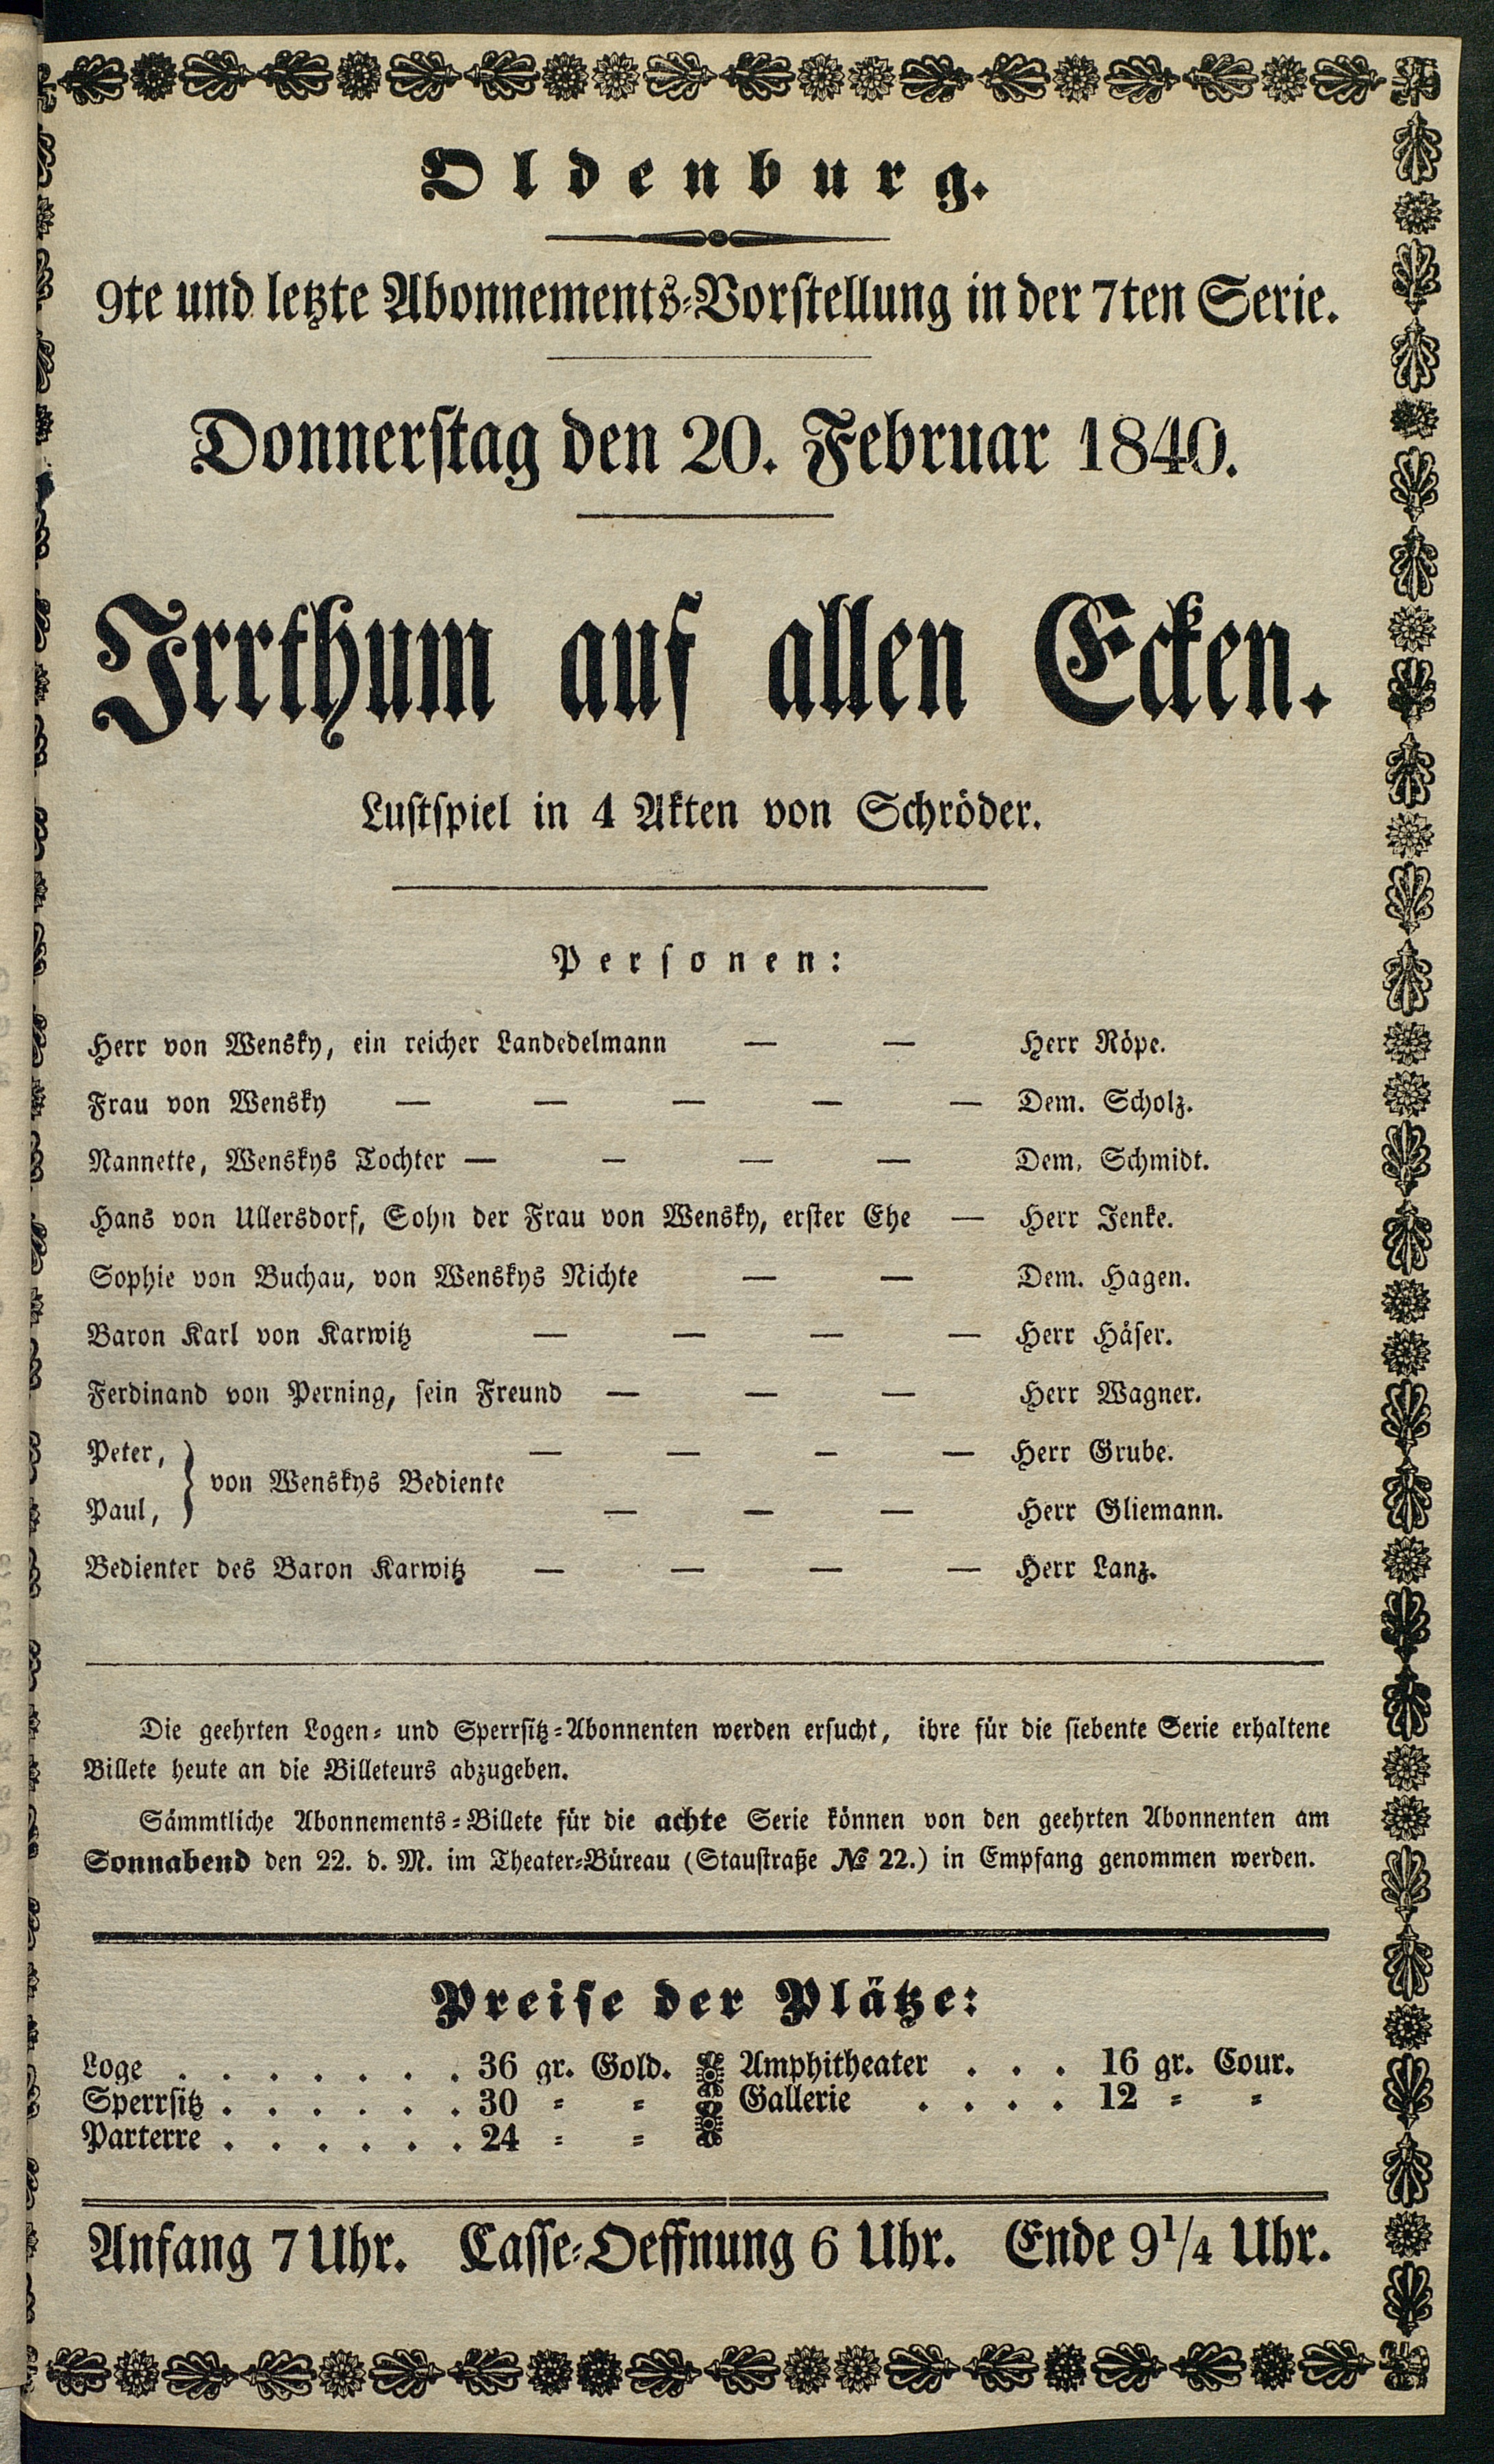 Oldenburg.
9te und letzte Abonnements-Vorstellung in der 7ten Serie.
Donnerstag den 20. Februar 1840.
Irrthum auf allen Ecken.
Lustspiel in 4 Akten von Schröder.
Personen:
Herr von Wensky, ein reicher Landedelmann — — Herr Röpe.
Frau von Wensky — — — — — Dem. Scholz.
Nannette, Wenskys Tochter — — — — Dem. Schmidt.
Hans von Ullersdorf, Sohn der Frau von Wensky, erster Ehe — Herr Jenke.
Sophie von Buchau, von Wenskys Nichte — — Dem. Hagen.
Baron Karl von Karwitz — — — — Herr Häser.
Ferdinand von Perning, sein Freund — — — Herr Wagner.
Peter, — — — — Herr Grube.
} von Wenskys Bediente
Paul, — — — Herr Gliemann.
Bedienter des Baron Karwitz — — — — Herr Lanz.
Die geehrten Logen- und Sperrsitz-Abonnenten werden ersucht, ihre für die siebente Serie erhaltene
Billete heute an die Billeteurs abzugeben.
Sämmtliche Abonnements-Billete für die achte Serie können von den geehrten Abonnenten am
Sonnabend den 22. d. M. im Theater-Büreau (Staustraße № 22.) in Empfang genommen werden.
Preise der Plätze:
Loge . . . . . . . 36 gr. Gold. Amphitheater . . . 16 gr. Cour.
Sperrsitz . . . . . . 30 = = Gallerie . . . . 12 = =
Parterre . . . . . . 24 = =
Anfang 7 Uhr. Casse-Oeffnung 6 Uhr. Ende 9¼ Uhr.